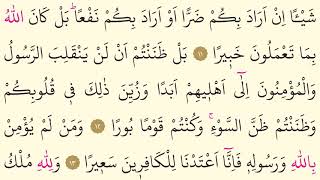 شَيْـًٔا اِنْ اَرَادَ بِكُمْ ضَرًّا اَوْ اَرَادَ بِكُمْ نَفْعًاۜ بَلْ كَانَ اللّٰهُ
بِمَا تَعْمَلُونَ خَب۪يرًا ﴿١١﴾ بَلْ ظَنَنْتُمْ اَنْ لَنْ يَنْقَلِبَ الرَّسُولُ
وَالْمُؤْمِنُونَ اِلٰٓى اَهْل۪يهِمْ اَبَدًا وَزُيِّنَ ذٰلِكَ ف۪ي قُلُوبِكُمْ
وَظَنَنْتُمْ ظَنَّ السَّوْءِۚ وَكُنْتُمْ قَوْمًا بُورًا ﴿١٢﴾ وَمَنْ لَمْ يُؤْمِنْ
بِاللّٰهِ وَرَسُولِه۪ فَاِنَّٓا اَعْتَدْنَا لِلْكَافِر۪ينَ سَع۪يرًا ﴿١٣﴾ وَلِلّٰهِ مُلْكُ